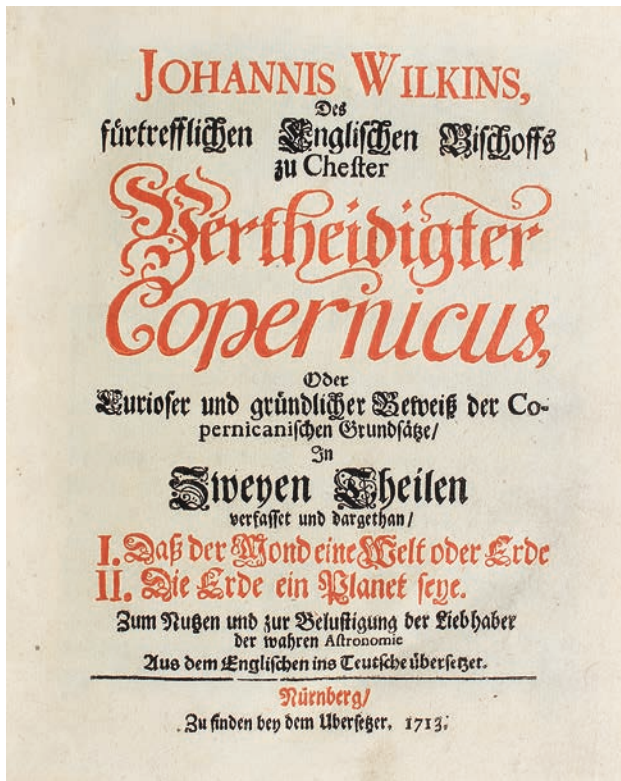 JOHANNIS WILKINS,
Des
fürtrefflichen Englischen Bischoffs
zu Chester
Vertheidigter
Copernicus,
Oder
Curioser und gründlicher Beweiß der Co-
pernicanischen Grundsätze/
In
Zweyen Theilen
verfasset und dargethan/
I. Daß der Mond eine Welt oder Erde
II. Die Erde ein Planet seye.
Zum Nutzen und zur Belustigung der Liebhaber
der wahren Astronomie
Aus dem Englischen ins Teutsche übersetzet.
Nürnberg/
Zu finden bey dem Ubersetzer. 1713.